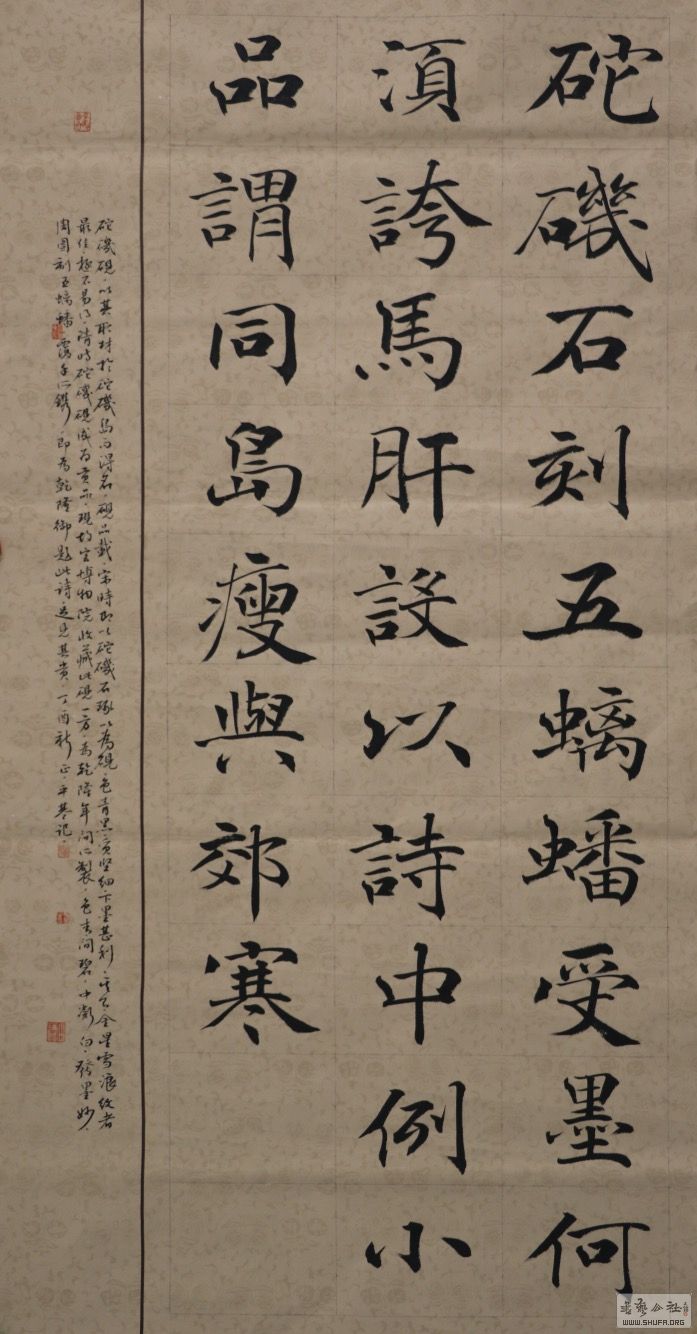 砣磯石刻五螭蟠受墨何
須誇馬肝設以詩中例小
品謂同島瘦與郊寒
砣磯硯以其取材於砣磯島而得名硯品載宋時即以砣磯石琢以為硯色青黑質堅細下墨甚利其有金星雪浪紋者
最佳極不易得清時砣磯硯成為貢品現故宮博物院收藏此硯一方為乾隆年間所製色青間碧中微白發墨妙
周圍刻五螭蟠所鐫即為乾隆御題此詩足見其貴丁酉秋記
WWW.SHUFA.ORG